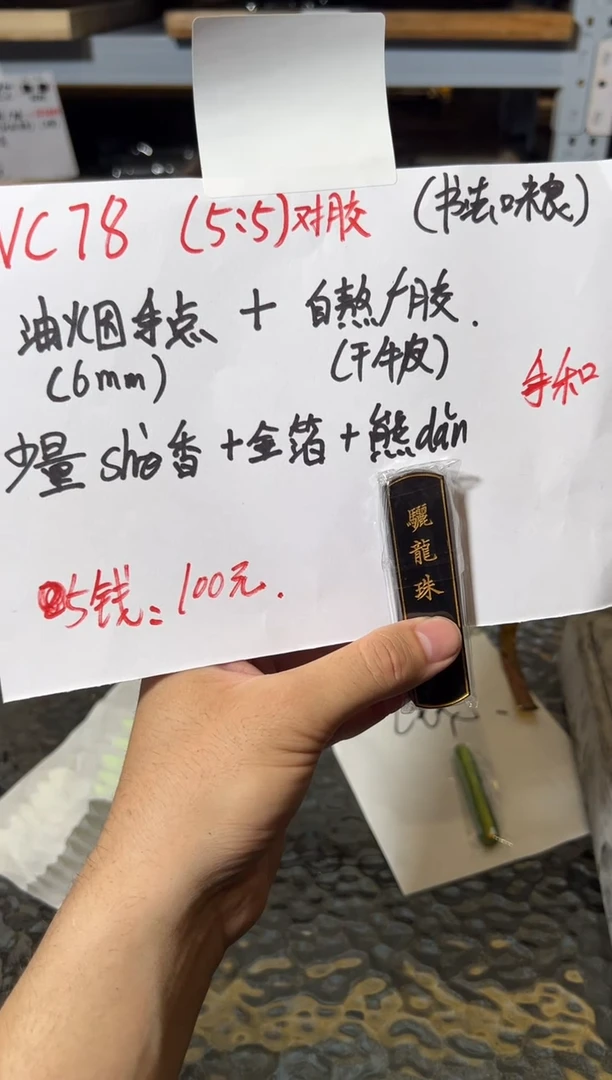 VC78 (5:5)对胶 (书法口粮)
油烟手点 + 自熬广胶.
(6mm) (干牛皮)
手和
少量 shè香+金箔+熊dǎn
5钱=100元.
驪龍珠